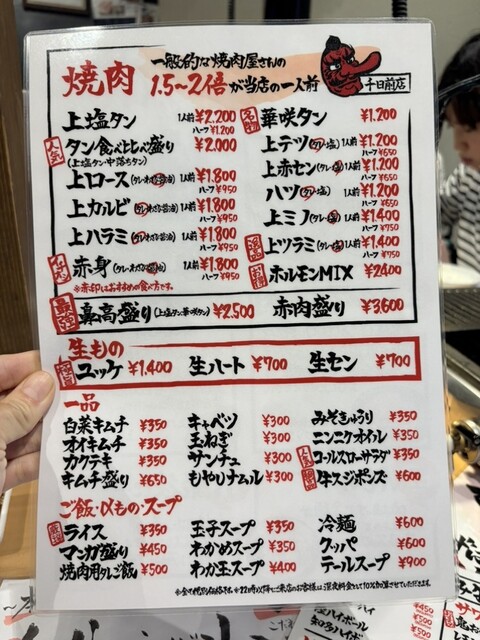 焼肉
一般的な焼肉屋さんの
1.5〜2倍が当店の一人前
千日前店
上塩タン 1人前 ¥2,200
ハーフ ¥1,200
人気 タン食べ比べ盛り ¥2,000
(上塩タン・中落ちタン)
上ロース(タレ・わさび醤油) 1人前 ¥1,800
ハーフ ¥950
上カルビ(タレ・わさび醤油) 1人前 ¥1,800
ハーフ ¥950
上ハラミ(タレ・わさび醤油) 1人前 ¥1,800
ハーフ ¥950
赤身(タレ・わさび醤油) 1人前 ¥1,800
ハーフ ¥950
※赤印はおすすめの食べ方です。
名物 華咲タン ¥1,200
上テツ(タレ・塩) 1人前 ¥1,200
ハーフ ¥650
上赤セン(タレ・塩) 1人前 ¥1,200
ハーフ ¥650
ハツ(タレ・塩) 1人前 ¥1,200
ハーフ ¥650
上ミノ(タレ・塩) 1人前 ¥1,400
ハーフ ¥750
上ツラミ(タレ・塩) 1人前 ¥1,400
ハーフ ¥750
ホルモンMIX ¥2400
最強 真高盛り(上塩タン・華咲タン) ¥2,500
赤肉盛り ¥3,600
生もの
ユッケ ¥1,400
生ハート ¥700
生セン ¥700
一品
白菜キムチ ¥350
オイキムチ ¥350
カクテキ ¥350
キムチ盛り ¥650
キャベツ ¥300
玉ねぎ ¥300
サンチュ ¥300
もやしナムル ¥300
みそきゅうり ¥350
ニンニクオイル ¥350
人気 コールスローサラダ ¥350
牛スジポンズ ¥600
ご飯・〆もの・スープ
ライス ¥350
マンガ盛り ¥450
焼肉用タレご飯 ¥500
玉子スープ ¥350
わかめスープ ¥350
わか玉スープ ¥400
冷麺 ¥600
クッパ ¥600
テールスープ ¥900
※全て税別価格です。※22時以降にご来店のお客様は深夜料金として10%頂戴させていただきます。
ハイボール
知多ハイボ
¥450
¥500
¥500